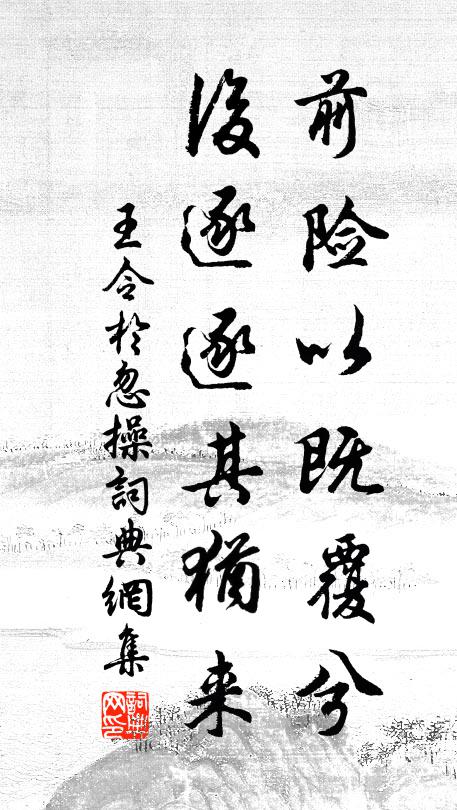 前险以既覆兮
後逐逐其猶来
王令於忽操詞典網集